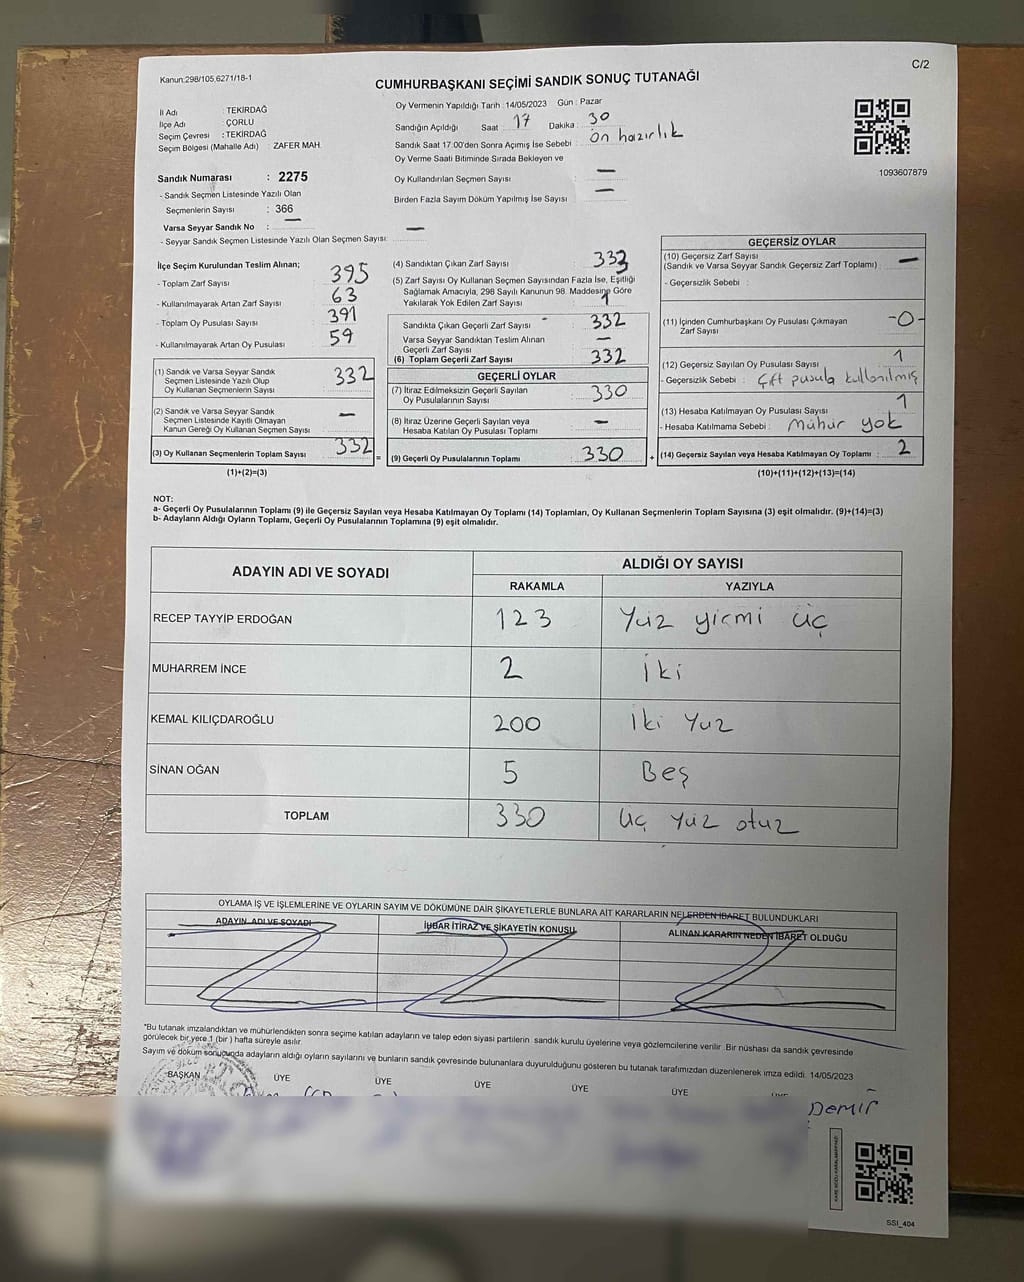 Kanun:298/105,6271/18-1
C/2
CUMHURBAŞKANI SEÇİMİ SANDIK SONUÇ TUTANAĞI
İl Adı : TEKİRDAĞ
İlçe Adı : ÇORLU
Seçim Çevresi : TEKİRDAĞ
Seçim Bölgesi (Mahalle Adı) : ZAFER MAH.
Sandık Numarası : 2275
- Sandık Seçmen Listesinde Yazılı Olan
Seçmenlerin Sayısı : 366
Varsa Seyyar Sandık No : —
- Seyyar Sandık Seçmen Listesinde Yazılı Olan Seçmen Sayısı: —
Oy Vermenin Yapıldığı Tarih : 14/05/2023 Gün : Pazar
Sandığın Açıldığı Saat : 17 Dakika : 30
Sandık Saat 17.00'den Sonra Açımış İse Sebebi : ön hazırlık
Oy Verme Saati Bitiminde Sırada Bekleyen ve
Oy Kullandırılan Seçmen Sayısı : —
Birden Fazla Sayım Döküm Yapılmış İse Sayısı : —
1093607879
İlçe Seçim Kurulundan Teslim Alınan;
- Toplam Zarf Sayısı : 395
- Kullanılmayarak Artan Zarf Sayısı : 63
- Toplam Oy Pusulası Sayısı : 391
- Kullanılmayarak Artan Oy Pusulası : 59
(1) Sandık ve Varsa Seyyar Sandık
Seçmen Listesinde Yazılı Olup
Oy Kullanan Seçmenlerin Sayısı : 332
(2) Sandık ve Varsa Seyyar Sandık
Seçmen Listesinde Kayıtlı Olmayan
Kanun Gereği Oy Kullanan Seçmen Sayısı : —
(3) Oy Kullanan Seçmenlerin Toplam Sayısı : 332
(1)+(2)=(3)
(4) Sandıktan Çıkan Zarf Sayısı : 333
(5) Zarf Sayısı Oy Kullanan Seçmen Sayısından Fazla İse, Eşitliği
Sağlamak Amacıyla, 298 Sayılı Kanunun 98. Maddesine Göre
Yakılarak Yok Edilen Zarf Sayısı : 1
Sandıkta Çıkan Geçerli Zarf Sayısı : 332
Varsa Seyyar Sandıktan Teslim Alınan
Geçerli Zarf Sayısı : —
(6) Toplam Geçerli Zarf Sayısı : 332
GEÇERLİ OYLAR
(7) İtiraz Edilmeksizin Geçerli Sayılan
Oy Pusulalarının Sayısı : 330
(8) İtiraz Üzerine Geçerli Sayılan veya
Hesaba Katılan Oy Pusulası Toplamı : —
= (9) Geçerli Oy Pusulalarının Toplamı : 330
GEÇERSİZ OYLAR
(10) Geçersiz Zarf Sayısı
(Sandık ve Varsa Seyyar Sandık Geçersiz Zarf Toplamı) : —
- Geçersizlik Sebebi :
(11) İçinden Cumhurbaşkanı Oy Pusulası Çıkmayan
Zarf Sayısı : -0-
(12) Geçersiz Sayılan Oy Pusulası Sayısı : 1
- Geçersizlik Sebebi : Çift pusula kullanılmış
(13) Hesaba Katılmayan Oy Pusulası Sayısı : 1
- Hesaba Katılmama Sebebi : Mühür yok
+ (14) Geçersiz Sayılan veya Hesaba Katılmayan Oy Toplamı : 2
(10)+(11)+(12)+(13)=(14)
NOT:
a- Geçerli Oy Pusulalarının Toplamı (9) ile Geçersiz Sayılan veya Hesaba Katılmayan Oy Toplamı (14) Toplamları, Oy Kullanan Seçmenlerin Toplam Sayısına (3) eşit olmalıdır. (9)+(14)=(3)
b- Adayların Aldığı Oyların Toplamı, Geçerli Oy Pusulalarının Toplamına (9) eşit olmalıdır.
ADAYIN ADI VE SOYADI
ALDIĞI OY SAYISI
RAKAMLA YAZIYLA
RECEP TAYYİP ERDOĞAN 123 Yüz yirmi üç
MUHARREM İNCE 2 İki
KEMAL KILIÇDAROĞLU 200 İki Yüz
SİNAN OĞAN 5 Beş
TOPLAM 330 Üç Yüz otuz
OYLAMA İŞ VE İŞLEMLERİNE VE OYLARIN SAYIM VE DÖKÜMÜNE DAİR ŞİKAYETLERLE BUNLARA AİT KARARLARIN NELERDEN İBARET BULUNDUKLARI
ADAYIN ADI VE SOYADI İHBAR İTİRAZ VE ŞİKAYETİN KONUSU ALINAN KARARIN NEDEN İBARET OLDUĞU
*Bu tutanak imzalandıktan ve mühürlendikten sonra seçime katılan adayların ve talep eden siyasi partilerin sandık kurulu üyelerine veya gözlemcilerine verilir. Bir nüshası da sandık çevresinde
görülecek bir yere 1 (bir) hafta süreyle asılır.
Sayım ve döküm sonucunda adayların aldığı oyların sayılarını ve bunların sandık çevresinde bulunanlara duyurulduğunu gösteren bu tutanak tarafımızdan düzenlenerek imza edildi. 14/05/2023
BAŞKAN ÜYE ÜYE ÜYE ÜYE ÜYE ÜYE
Demir
SSI_404